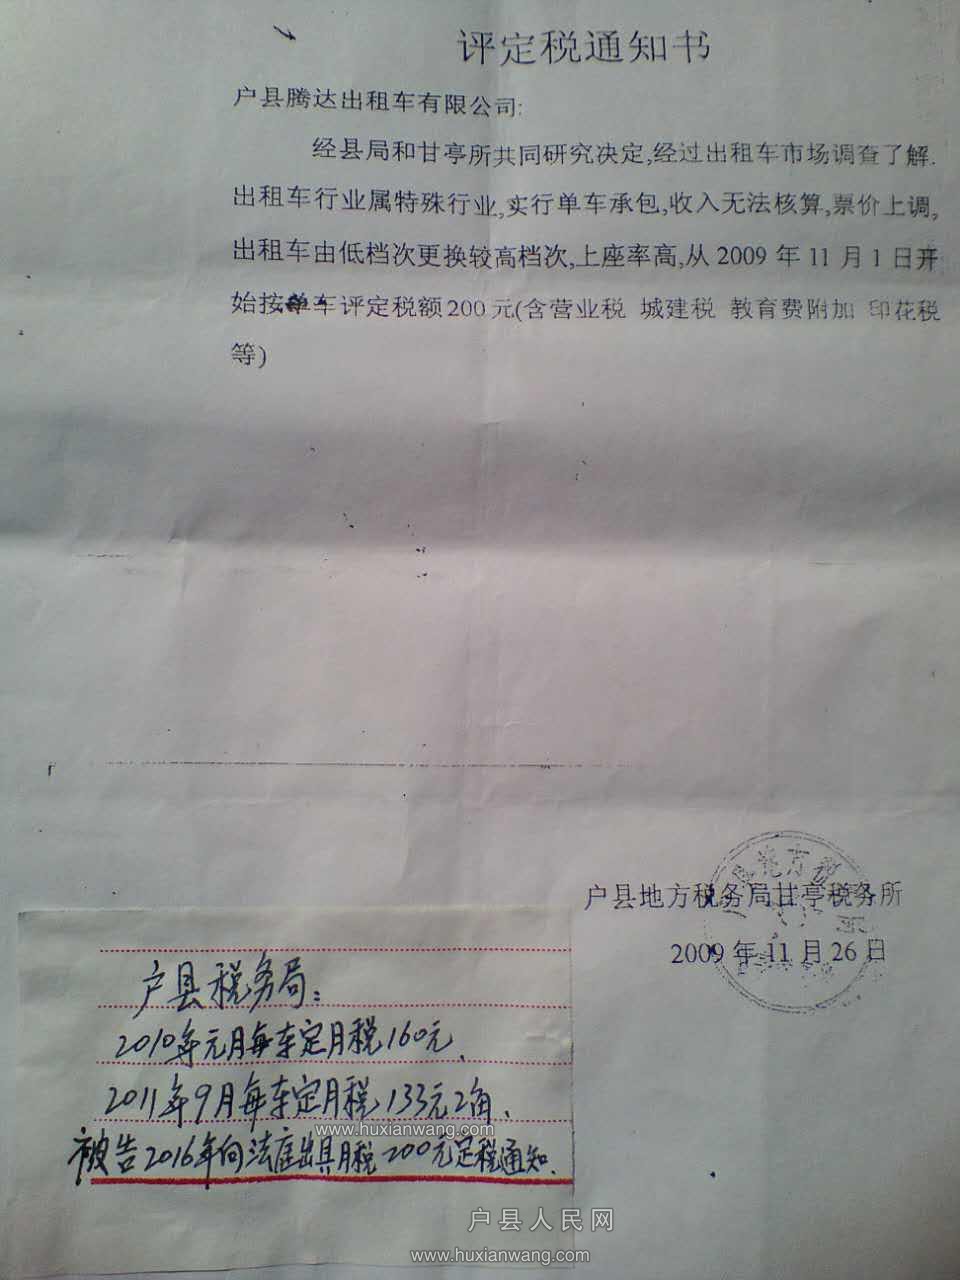 评定税通知书
户县腾达出租车有限公司:
经县局和甘亭所共同研究决定,经过出租车市场调查了解.
出租车行业属特殊行业,实行单车承包,收入无法核算,票价上调,
出租车由低档次更换较高档次,上座率高,从2009年11月1日开
始按单车评定税额200元(含营业税 城建税 教育费附加 印花税
等)
户县地方税务局甘亭税务所
2009年11月26日
户县税务局:
2010年元月每车定月税160元、
2011年9月每车定月税133元2角、
www.huxianwang.com
被告2016年向法庭出具月税200元定税通知、
户县人民网
www.huxianwang.com